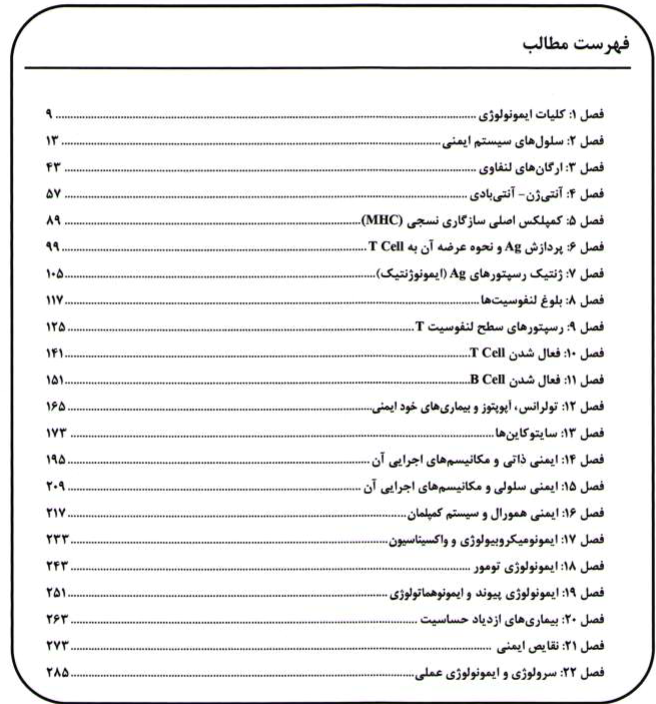 فهرست مطالب
فصل ۱: کلیات ایمونولوژی ........ ۹
فصل ۲: سلول‌های سیستم ایمنی ........ ۱۳
فصل ۳: ارگان‌های لنفاوی ........ ۴۳
فصل ۴: آنتی‌ژن- آنتی‌بادی ........ ۵۷
فصل ۵: کمپلکس اصلی سازگاری نسجی (MHC) ........ ۸۹
فصل ۶: پردازش Ag و نحوه عرضه آن به T Cell ........ ۹۹
فصل ۷: ژنتیک رسپتورهای Ag (ایمونوژنتیک) ........ ۱۰۵
فصل ۸: بلوغ لنفوسیت‌ها ........ ۱۱۷
فصل ۹: رسپتورهای سطح لنفوسیت T ........ ۱۲۵
فصل ۱۰: فعال شدن T Cell ........ ۱۴۱
فصل ۱۱: فعال شدن B Cell ........ ۱۵۱
فصل ۱۲: تولرانس، آپوپتوز و بیماری‌های خود ایمنی ........ ۱۶۵
فصل ۱۳: سایتوکاین‌ها ........ ۱۷۳
فصل ۱۴: ایمنی ذاتی و مکانیسم‌های اجرایی آن ........ ۱۹۵
فصل ۱۵: ایمنی سلولی و مکانیسم‌های اجرایی آن ........ ۲۰۹
فصل ۱۶: ایمنی همورال و سیستم کمپلمان ........ ۲۱۷
فصل ۱۷: ایمونومیکروبیولوژی و واکسیناسیون ........ ۲۳۳
فصل ۱۸: ایمونولوژی تومور ........ ۲۴۳
فصل ۱۹: ایمونولوژی پیوند و ایمونوهماتولوژی ........ ۲۵۱
فصل ۲۰: بیماری‌های ازدیاد حساسیت ........ ۲۶۳
فصل ۲۱: نقایص ایمنی ........ ۲۷۳
فصل ۲۲: سرولوژی و ایمونولوژی عملی ........ ۲۸۵